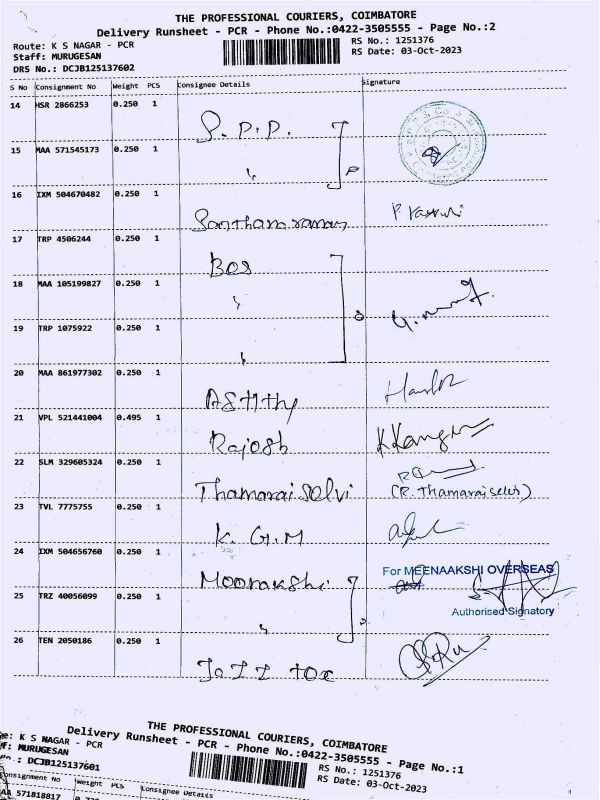 THE PROFESSIONAL COURIERS, COIMBATORE
Delivery Runsheet - PCR - Phone No.:0422-3505555 - Page No.:2
Route: K S NAGAR - PCR
RS No.: 1251376
Staff: MURUGESAN
RS Date: 03-Oct-2023
DRS No.: DCJB125137602
S No Consignment No Weight PCS Consignee Details Signature
14 HSR 2866253 0.250 1 S. P. P.
15 MAA 571545173 0.250 1
16 IXM 504670482 0.250 1
17 TRP 4506244 0.250 1 Bos
18 MAA 105199827 0.250 1
19 TRP 1075922 0.250 1
20 MAA 861977302 0.250 1
21 VPL 521441004 0.495 1 Rajosh
22 SLM 329605324 0.250 1 Thamarai Selvi (R. Thamaraiselvi)
23 TVL 7775755 0.250 1 K. G. M
24 IXM 504656760 0.250 1 Moonakshi For MEENAAKSHI OVERSEAS
25 TRZ 40056099 0.250 1 Authorised Signatory
26 TEN 2050186 0.250 1
THE PROFESSIONAL COURIERS, COIMBATORE
Delivery Runsheet - PCR - Phone No.:0422-3505555 - Page No.:1
K S NAGAR - PCR
RS No.: 1251376
MURUGESAN
RS Date: 03-Oct-2023
DCJB125137601
Consignment No Weight PCS Consignee Details
571818817